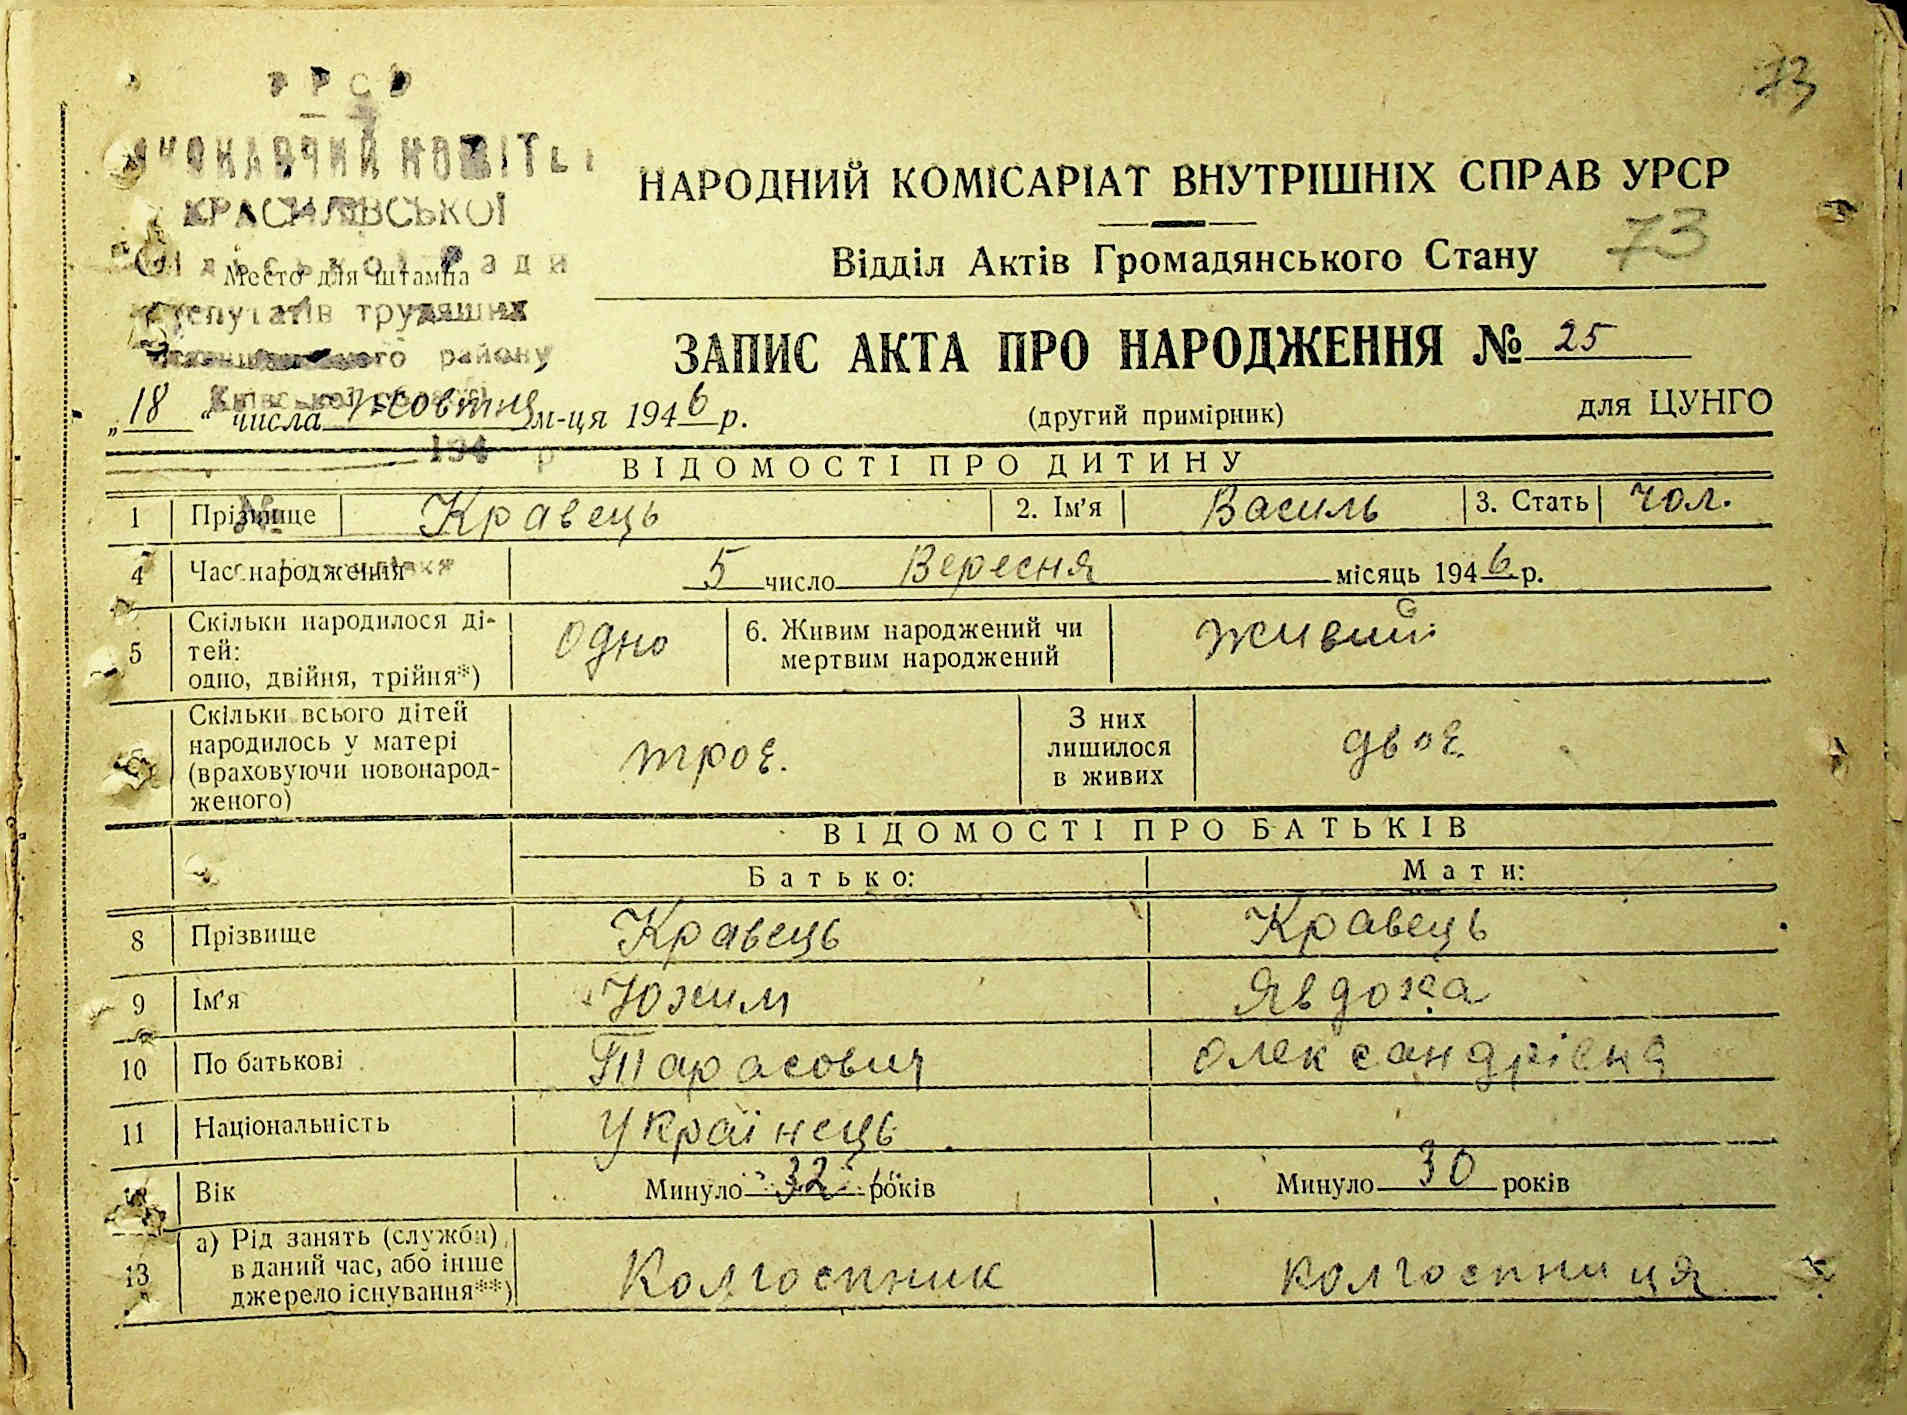 73
УРСР
ВИКОНАВЧИЙ КОМІТЕТ
КРАСИЛІВСЬКОЇ
Сільської Ради
Место для штампа
депутатів трудящих
району
Київської області
194 р
№
НАРОДНИЙ КОМІСАРІАТ ВНУТРІШНІХ СПРАВ УРСР
73
Відділ Актів Громадянського Стану
ЗАПИС АКТА ПРО НАРОДЖЕННЯ № 25
„18“ числа Жовтня м-ця 1946 р.
(другий примірник)
для ЦУНГО
ВІДОМОСТІ ПРО ДИТИНУ
1 Прізвище Кравець 2. Ім'я Василь 3. Стать чол.
4 Час народження 5 число Вересня місяць 1946 р.
5 Скільки народилося ді-
тей:
одно, двійня, трійня*) одно 6. Живим народжений чи
мертвим народжений живий
Скільки всього дітей
народилось у матері
(враховуючи новонарод-
женого) троє. З них
лишилося
в живих двоє
ВІДОМОСТІ ПРО БАТЬКІВ
Батько: Мати:
8 Прізвище Кравець Кравець
9 Ім'я Юхим Явдоха
10 По батькові Тарасович Олександрівна
11 Національність Українець
12 Вік Минуло 32 років Минуло 30 років
13 а) Рід занять (служба)
в даний час, або інше
джерело існування**) Колгоспник колгоспниця